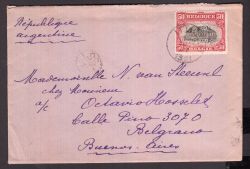 République
argentine
50 BELGIQUE 50
BELGIË
Mademoiselle N. van
chez Monsieur
a/c Octavio Hosselet
Calle Pino 3070
Belgrano
Buenos-Aires